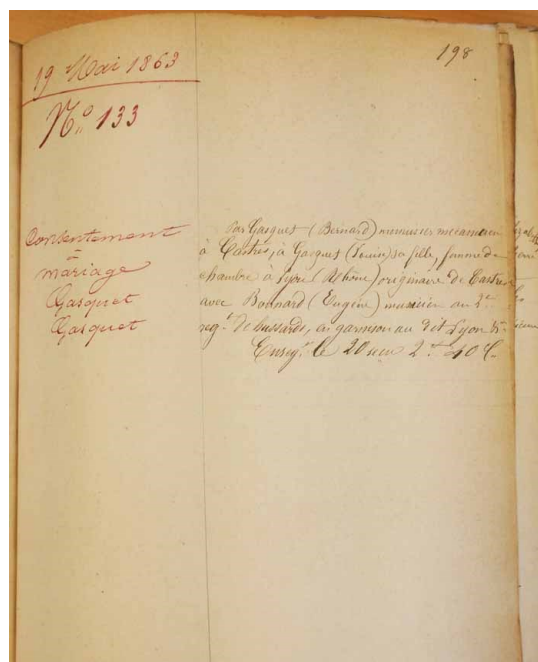 198
19 Mai 1863
N.° 133
Consentement
à
mariage
Gasquet
Gasquet
Par Gasquet (Bernard) menuisier mecanicien
à Castres, à Gasquet (Louise) sa fille, femme de
chambre à Lyon (Rhône) originaire de Castres
avec Bonnard (Eugène) musicien au 2.e
reg.t de hussards, en garnison au dit Lyon
Enreg.t le 20 2 40 c.